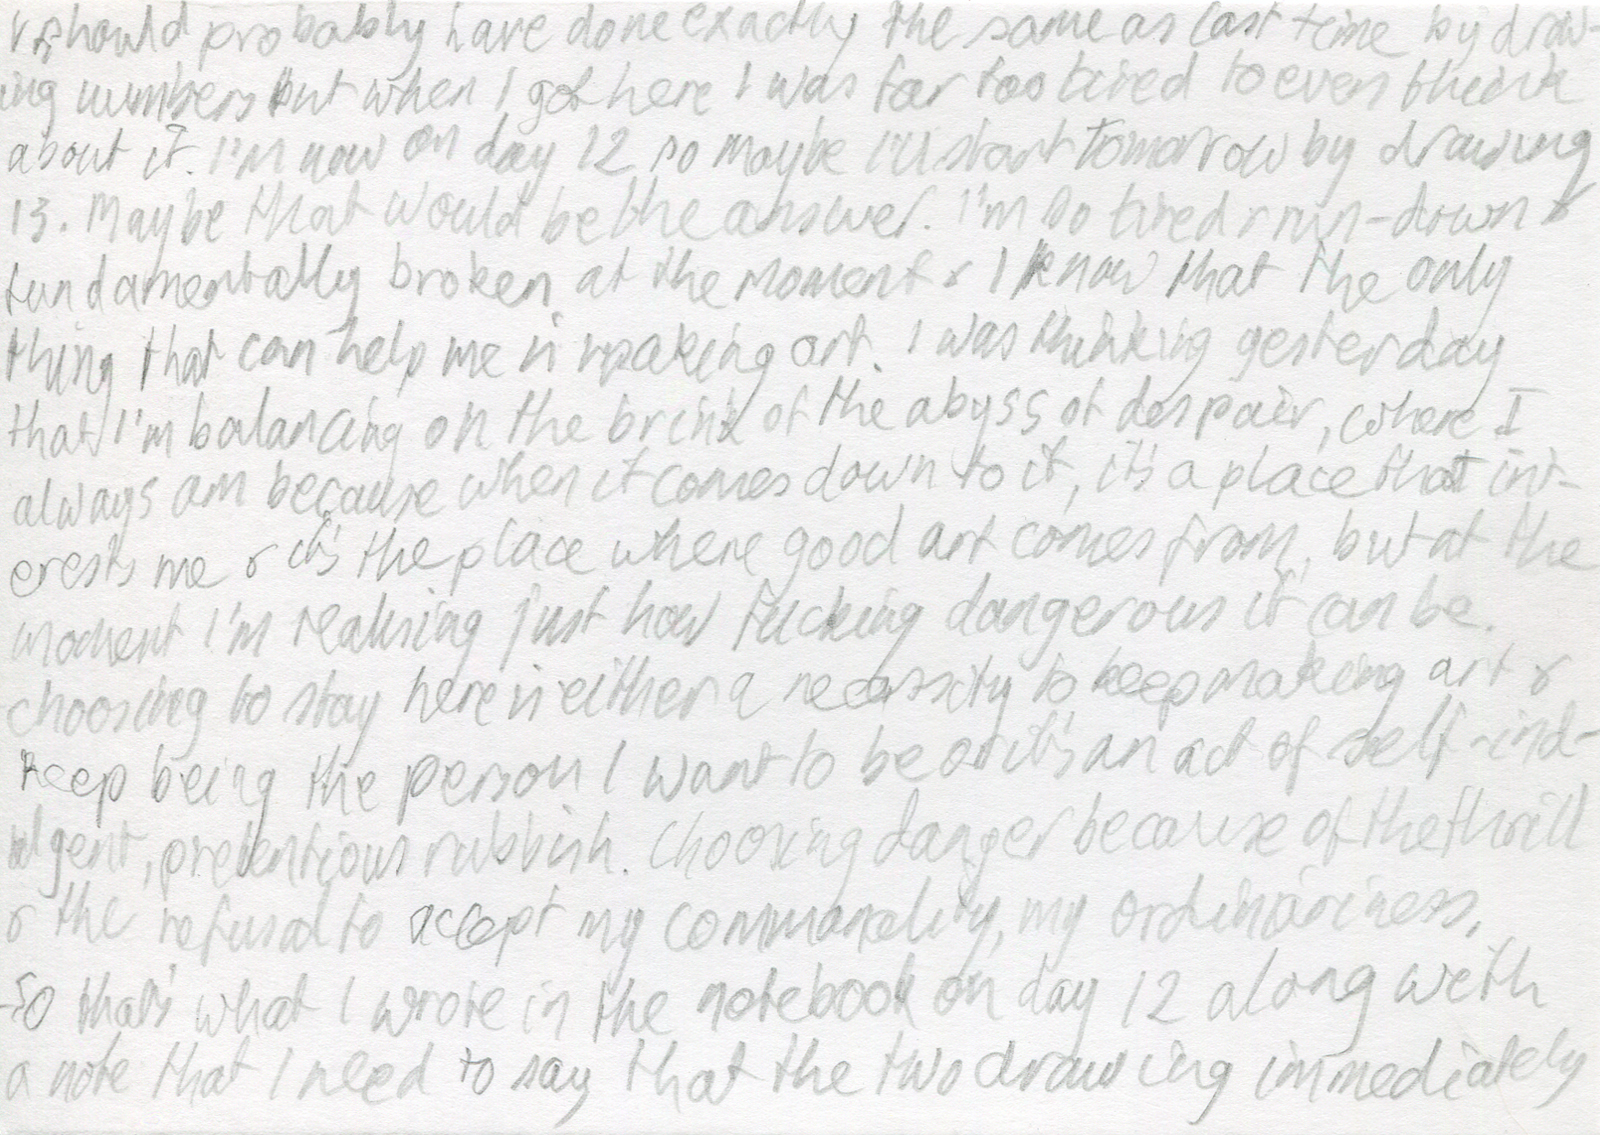 I should probably have done exactly the same as last time by draw-
ing numbers but when I got here I was far too tired to even think
about it. I'm now on day 12 so maybe I'll start tomorrow by drawing
13. Maybe that would be the answer. I'm so tired & run-down &
fundamentally broken at the moment & I know that the only
thing that can help me is making art. I was thinking yesterday
that I'm balancing on the brink of the abyss of despair, where I
always am because when it comes down to it, it's a place that int-
erests me & it's the place where good art comes from, but at the
moment I'm realising just how fucking dangerous it can be.
choosing to stay here is either a necessity to keep making art &
keep being the person I want to be or it's an act of self-ind-
ulgent, pretentious rubbish. Choosing danger because of the thrill
& the refusal to accept my commonality, my ordinariness.
So that's what I wrote in the notebook on day 12 along with
a note that I need to say that the two drawing immediately